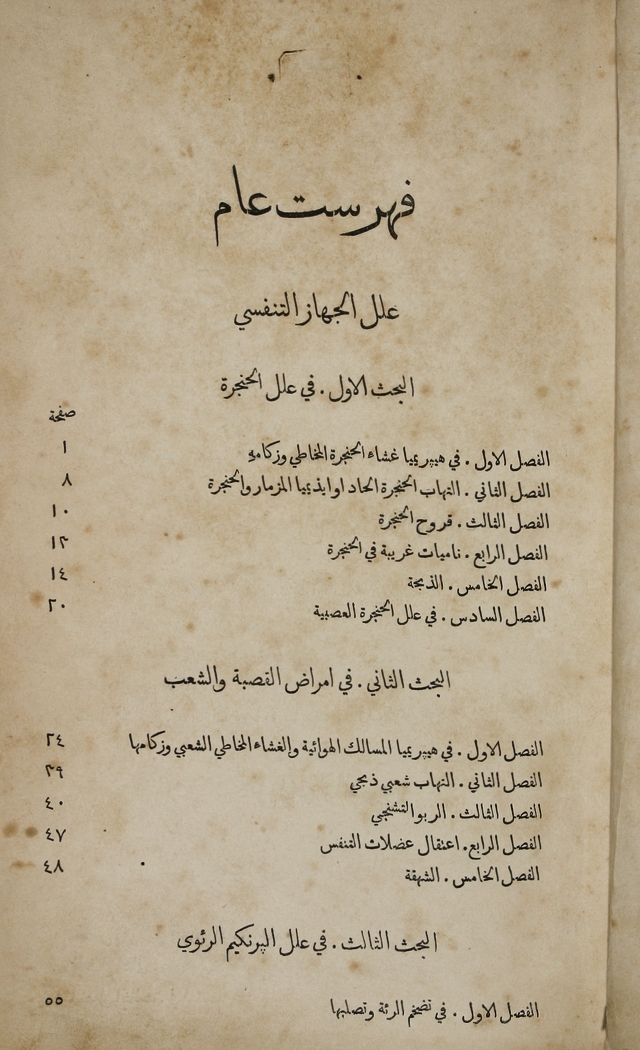 فهرست عام
علل الجهاز التنفسي
البحث الاول . في علل الحنجرة
صفحة
الفصل الاول . في هيپريميا غشاء الحنجرة المخاطي وزكامهِ ١
الفصل الثاني . التهاب الحنجرة الحاد او ايذيميا المزمار والحنجرة ٨
الفصل الثالث . قروح الحنجرة ١٠
الفصل الرابع . ناميات غريبة في الحنجرة ١٣
الفصل الخامس . الذبحة ١٤
الفصل السادس . في علل الحنجرة العصبية ٢٠
البحث الثاني . في امراض القصبة والشعب
الفصل الاول . في هيپريميا المسالك الهوائية والغشاء المخاطي الشعبي وزكامها ٢٤
الفصل الثاني . التهاب شعبي ذبحي ٣٩
الفصل الثالث . الربو التشنجي ٤٠
الفصل الرابع . اعتقال عضلات التنفس ٤٧
الفصل الخامس . الشهقة ٤٨
البحث الثالث . في علل الپرنكيم الرئوي
الفصل الاول . في تضخم الرئة وتصلبها ٥٥